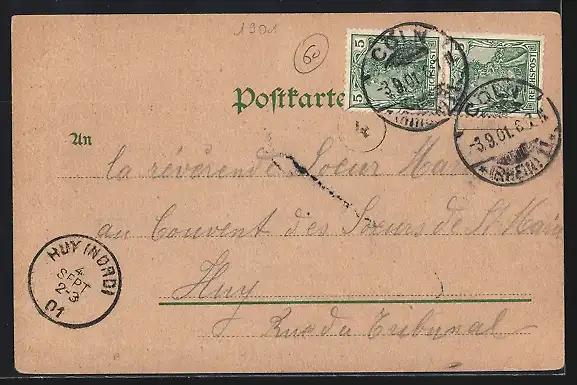 1901
60
5 REICHSPOST 5
REICHSPOST
CÖLN
3.9.01.
CÖLN
-3.9.01.6-7.
*(RHEIN)1*
Postkarte
An
la révérende Soeur
au Couvent des Soeurs de St
Huy
Rue du Tribunal
HUY (NORD)
4
SEPT
2-3
01